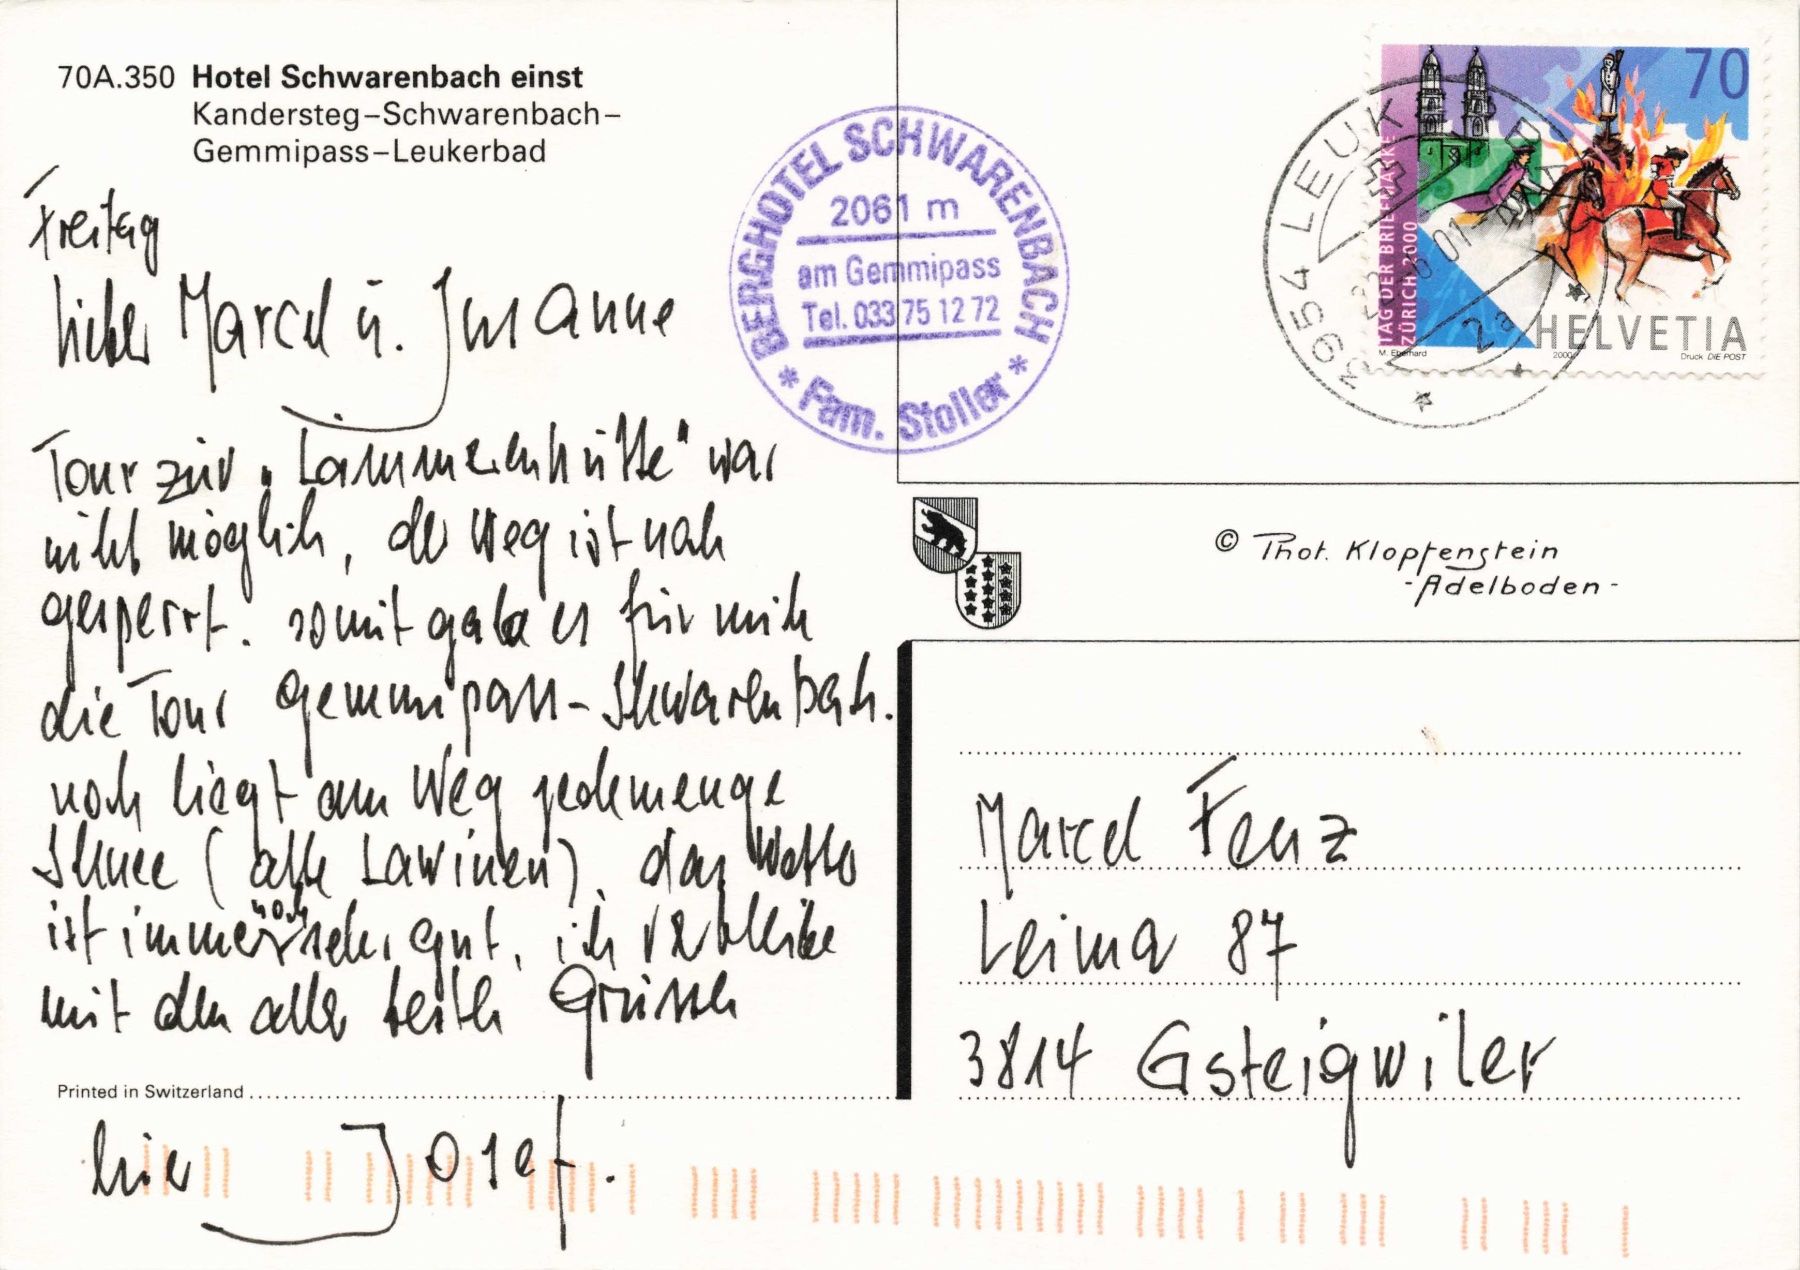 70A.350 Hotel Schwarenbach einst
Kandersteg–Schwarenbach–
Gemmipass–Leukerbad
Freitag
Lieber Marcel u. Susanne
Tour zur "Lämmerenhütte" war
nicht möglich, der Weg ist noch
gesperrt. somit gab es für mich
die Tour Gemmipass-Schwarenbach.
noch liegt am Weg jedemenge
Schnee (alte Lawinen), das Wetter
ist immer noch sehr gut, ich verbleibe
mit den aller besten Grüssen
Printed in Switzerland
Josef.
BERGHOTEL SCHWARENBACH
2061 m
am Gemmipass
Tel. 033 75 12 72
* Fam. Stoller *
3954 LEUKERBAD
01
2a
70
TAG DER BRIEFMARKE
ZÜRICH 2000
HELVETIA
M. Eberhard 2000 Druck DIE POST
© Phot. Klopfenstein
-Adelboden-
Marcel Fenz
Leima 87
3814 Gsteigwiler